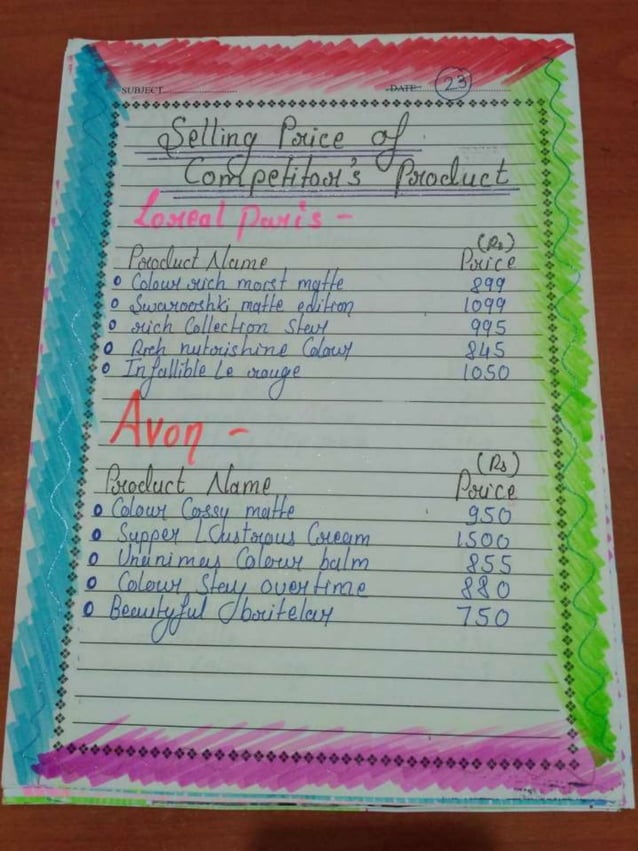 SUBJECT
DATE 23
Selling Price of
Competitor's Product
Loreal Paris -
(Rs)
Product Name Price
Colour rich moist matte 899
Swarooshki matte edition 1099
rich Collection Star 995
Rich nutrishine Colour 845
Infallible Le rouge 1050
Avon -
(Rs)
Product Name Price
Colour Cossy matte 950
Supper Lustrous Cream 1500
Colour balm 855
Colour Stay overtime 880
Beautyful 750